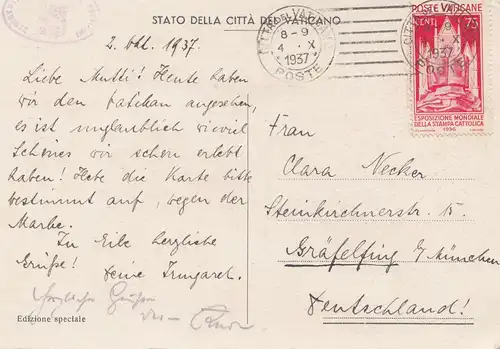 STATO DELLA CITTÀ DEL VATICANO
2. Okt. 1937.
Liebe Mutti! Heute haben
wir den Vatikan angesehen,
es ist unglaublich wieviel
Schönes wir schon erlebt
haben! Hebe die Karte bitte
bestimmt auf, wegen der
Marke.
In Eile herzliche
Grüße! Deine Irmgard.
Herzliche Grüße
Edizione speciale
CITTÀ DEL VATICANO
8-9
4 X
1937
POSTE
POSTE VATICANE
CENT. 75
1937
ESPOSIZIONE MONDIALE
DELLA STAMPA CATTOLICA
1936
Frau
Clara Necker
Steinkirchnerstr. 15.
Gräfelfing b/München
Deutschland!